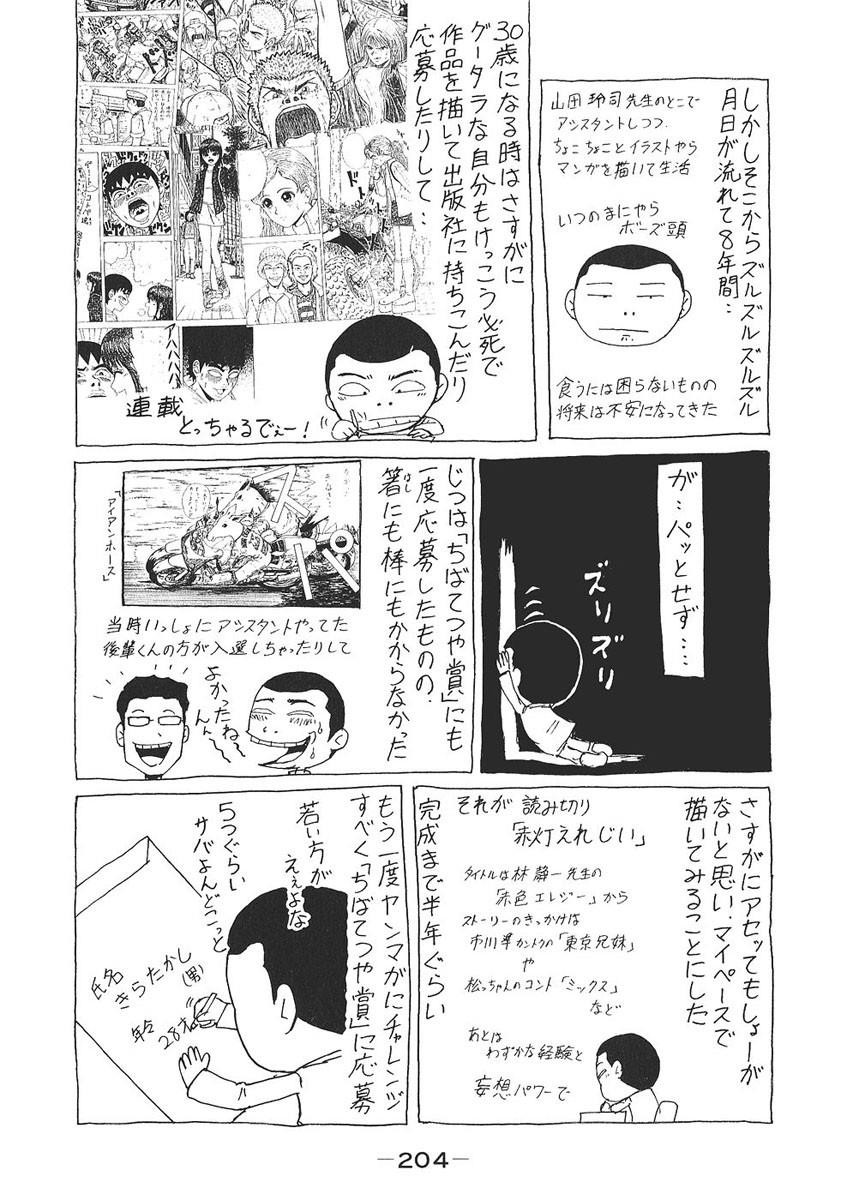 しかしそこからズルズルズルズル
月日が流れて8年間‥
山田玲司先生のとこで
アシスタントしつつ、
ちょこちょことイラストやら
マンガを描いて生活
いつのまにやら
ボーズ頭
食うには困らないものの
将来は不安になってきた
30歳になる時はさすがに
グータラな自分もけっこう必死で
作品を描いて出版社に持ちこんだり
応募したりして‥
アハハハハ
連載
とっちゃるでぇー!
が‥パッとせず…
ズリズリ
じつは「ちばてつや賞」にも
一度応募したものの、
箸にも棒にもかからなかった
はし
「アイアンホース」
当時いっしょにアシスタントやってた
後輩くんの方が入選しちゃったりして
よかったね〜
んん〜
さすがにアセッてもしょーが
ないと思い、マイペースで
描いてみることにした
それが 読み切り
「赤灯えれじい」
タイトルは林 静一先生の
「赤色エレジー」から
ストーリーのきっかけは
市川準カントクの「東京兄妹」
や
松っちゃんのコント「ミックス」
など
あとは
わずかな経験と
妄想パワーで
完成まで半年ぐらい
もう一度ヤンマガにチャレンジ
すべく「ちばてつや賞」に応募
若い方が
ええよな
5つぐらい
サバよんどこっと
氏名
きらたかし
(男)
年令
28才
—204—